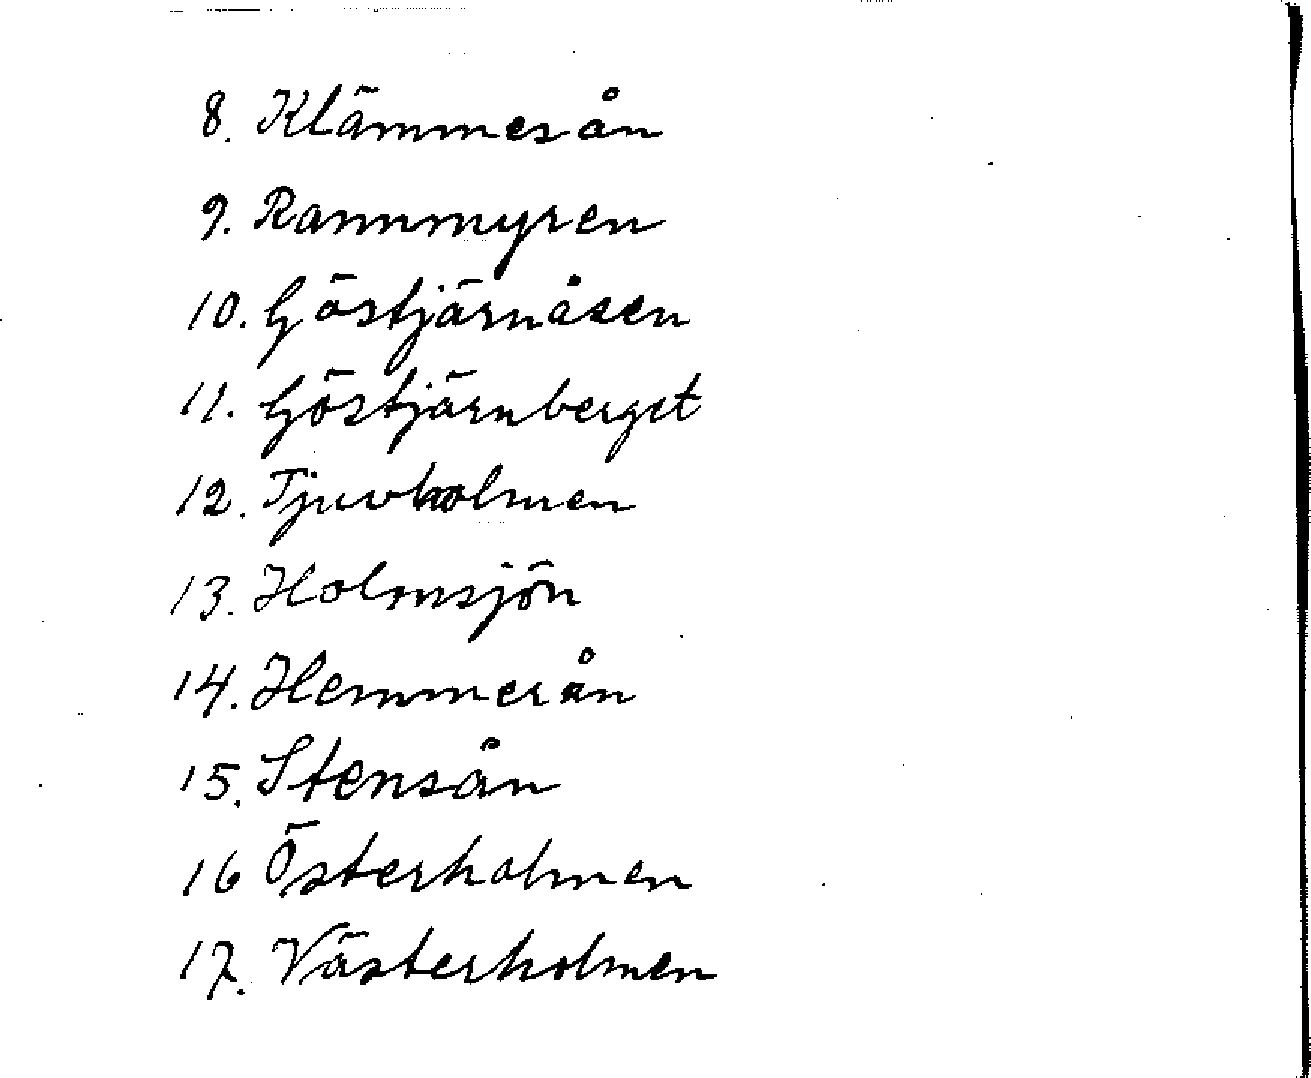 8. Klämmesån
9. Rammmyren
10. Göstjärnåsen
11. Göstjärnberget
12. Tjuvholmen
13. Holmsjön
14. Hemmerån
15. Stensån
16 Österholmen
17. Västerholmen